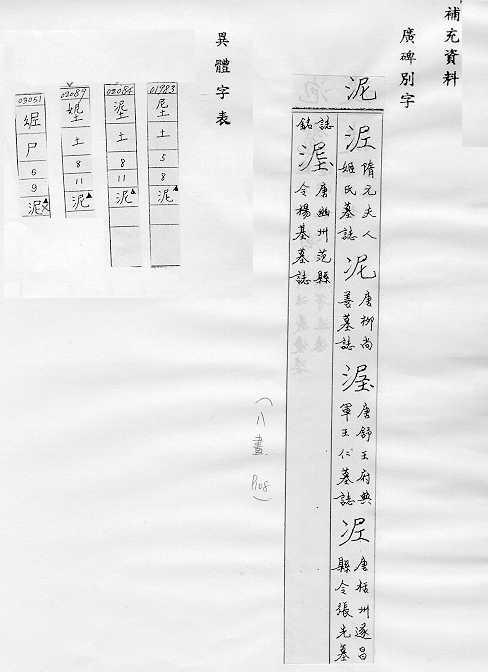 補充資料
廣碑別字
泥
隋元夫人
姬氏墓誌
唐柳尚
善墓誌
唐舒王府典
軍王仁墓誌
唐栝州遂昌
縣令張先墓
誌銘
唐幽州范縣
令楊基墓誌
(八畫 P108)
異體字表
01983
土
5
8
泥
02084
埿
土
8
11
泥
02089
土
8
11
泥
03051
尸
6
9
泥